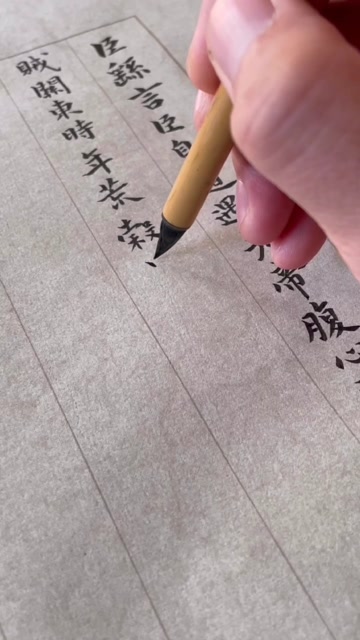 臣繇言臣自遭遇先帝腹心
賊關東時年荒穀